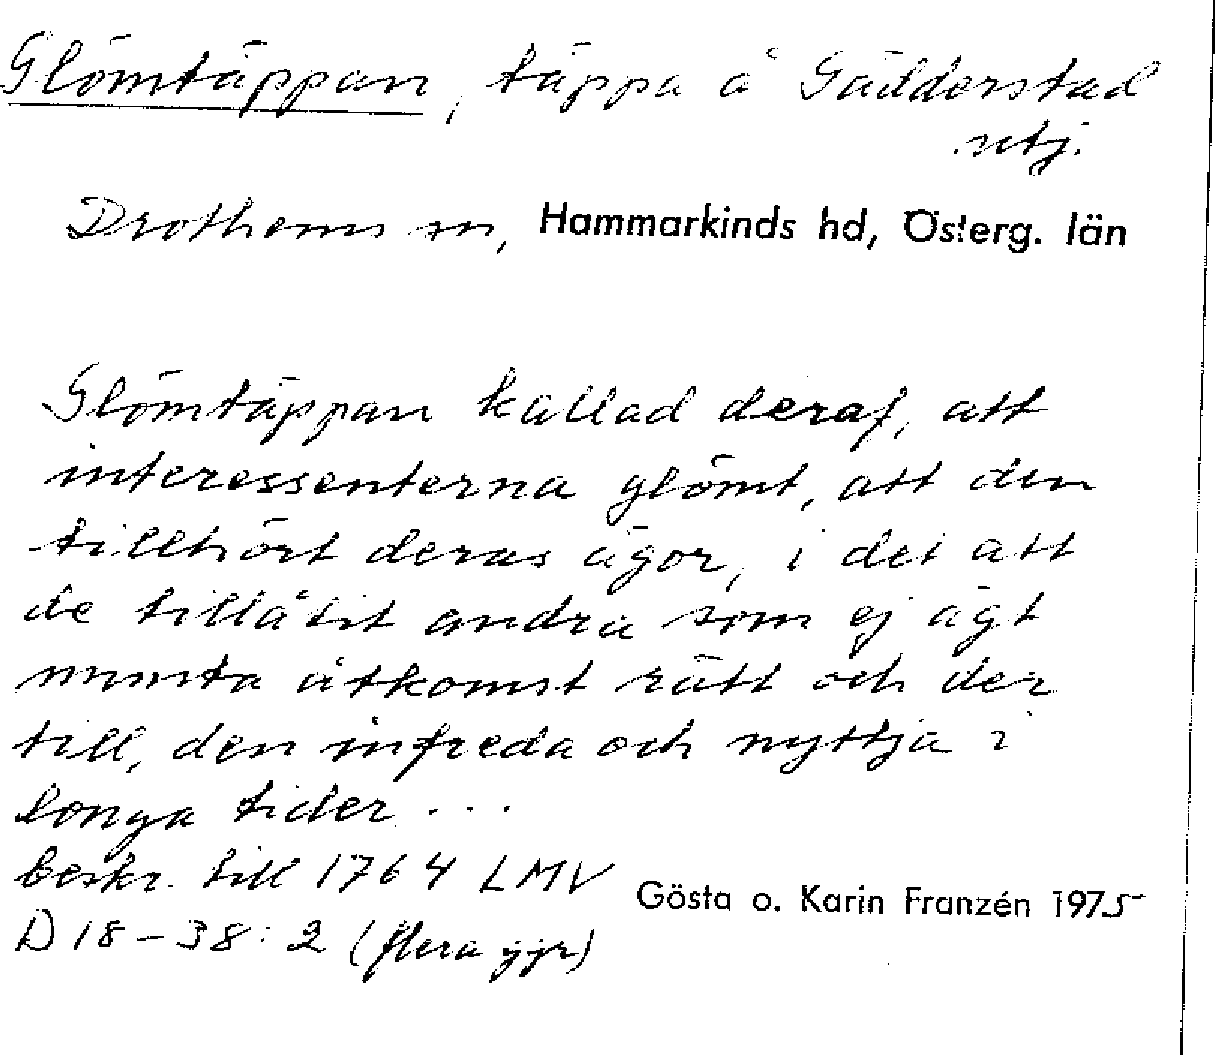 Glömtäppan, täppa å Gälderstad
sätj.
Drothems sn, Hammarkinds hd, Österg. län
Glömtäppan kallad deraf, att
interessenterna glömt, att den
tillhört deras ägor, i det att
de tillåtit andra som ej ägt
minsta åtkomst rätt och der
till, den infreda och nyttja i
longa tider ...
beskr. till 1764 LMV
D 18-38:2 (flera ggr)
Gösta o. Karin Franzén 1975